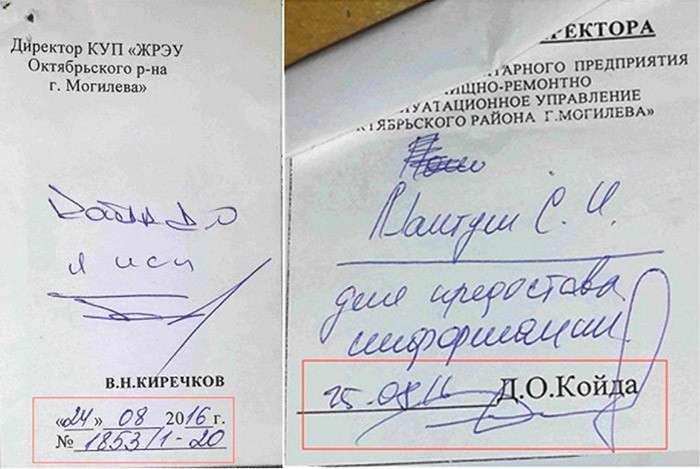 Директор КУП «ЖРЭУ
Октябрьского р-на
г. Могилева»
В.Н.КИРЕЧКОВ
«24» 08 2016 г.
№ 1853/1-20
РЕКТОРА
ТАРНОГО ПРЕДПРИЯТИЯ
ИЩНО-РЕМОНТНО
ЛУАТАЦИОННОЕ УПРАВЛЕНИЕ
КТЯБРЬСКОГО РАЙОНА Г.МОГИЛЕВА»
С. И.
для предостава
информации
25.08.16 Д.О.Койда